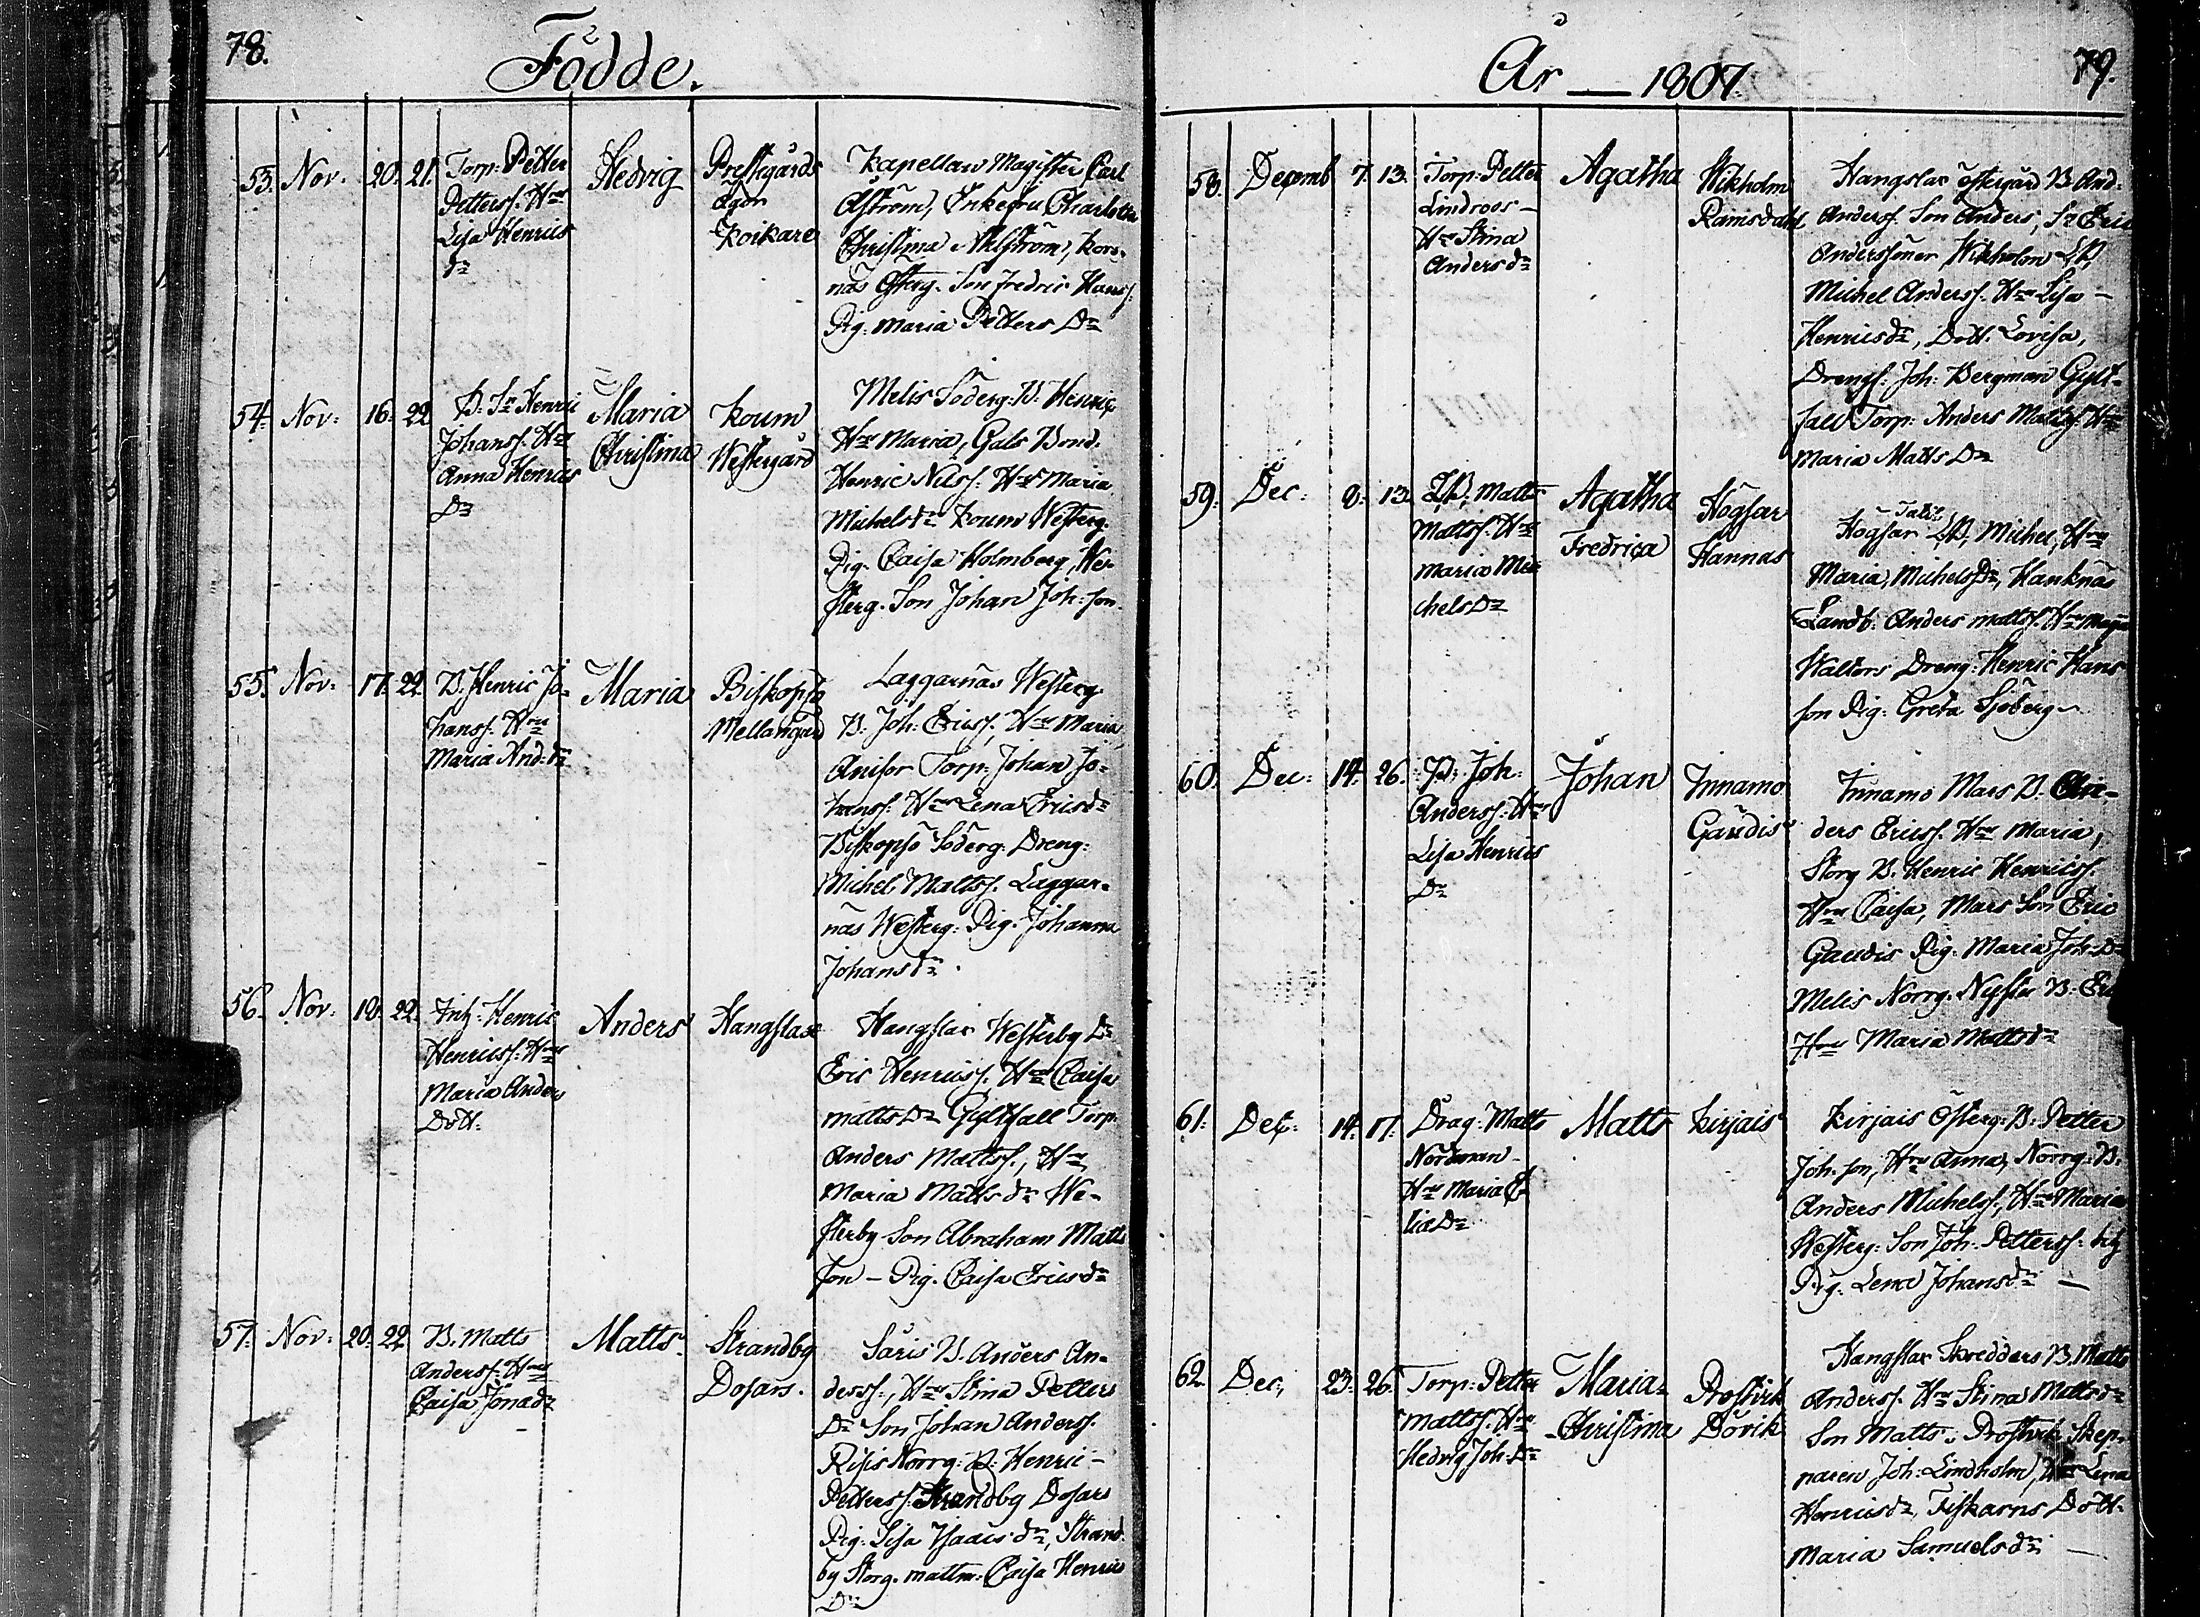 78.
Födde.
53. Nov. 20. 21. Torp. Petter
Petterss. Hru
Lisa Henrics
dr
Hedvig
Prestgårds
ägor
Koikare
Kapellan Magister Carl
Åström, Enkefru Charlotta
Christina Ahlström, Kors-
näs Österg. Son Fredric Hanss.
Pig. Maria Petters Dr
54. Nov: 16. 22. B. Sn Henric
Johanss. Hru
Anna Henrics
Dr
Maria
Christina
Koum
Westergård
Melis Söderg. B. Henric
Hru Maria, Gals Bond.
Henric Nilss. Hru Maria
Michelsdr Koum Westerg.
Pig. Caisa Holmberg, We-
sterg. Son Johan Joh: son.
55. Nov: 17. 22. B. Henric Jo-
hanss. Hru
Maria And: dr
Maria
Biskopsö
Mellangård
Laggarnäs Westerg.
B. Joh: Ericss. Hru Maria,
Anisor Torp. Johan Jo-
hanss. Hru Lena Ericsdr
Biskopsö Söderg. Dreng:
Michel Mattss. Laggar-
näs Westerg: Pig. Johanna
Johansdr.
56. Nov: 18. 22. Inh. Henric
Henricss. Hru
Maria Anders
Dott.
Anders
Hangslax
Hangslax Westerby B.
Eric Henricss. Hru Caisa
Matts Dr Gyltfall Torp.
Anders Mattss., Hru
Maria Matts dr We-
sterby Son Abraham Matts
son – Pig. Caisa Ericsdr
57. Nov: 20. 22. B. Matts
Anderss. Hru
Caisa Jonadr
Matts
Strandby
Dosars.
Säris B. Anders An-
derss., Hru Stina Petters
Dr Son Johan Anderss.
Risis Norrg: B. Henric –
Petterss. Strandby Dosars
Pig. Lisa Isaacs dr, Strand-
by Storg. mattm. Caisa Henrics
Dr
År — 1807
79.
58. Decemb 7. 13. Torp. Petter
Lindroos –
Hru Stina
Anders dr
Agatha
Wikholm
Ramsdahl
Hangslax Östergård B. And.
Anderss. Son Anders, Sn Eric
Anderssöner, Wikholm LB.
Michel Anderss. Hru Lisa –
Henricsdr, Dott. Lovisa,
Drengs. Joh: Bergman Gylt-
fall Torp: Anders Mattss. Hru
Maria Matts Dr
59. Dec: 8. 13. LB. Matts
Mattss. Hru
Maria Mi-
chels Dr
Agatha
Fredrica
Högsar
Hannas
Högsar LB. Michel, Hru
Maria Michels Dr, Hanknäs
Landb: Anders Mattss. Hru Maja
Walters Dreng. Henric Hans
son Pig: Greta Sjöberg –
60. Dec: 14. 26. B: Joh:
Anderss. Hru
Lisa Henrics
Dr
Johan
Innamo
Gaudis
Innamo Mars B. An-
ders Ericss. Hru Maria,
Storg B. Henric Henricss.
Hru Caisa, Mars Son Eric
Gaudis Pig. Maria Joh: Dr
Melis Norrg. Nyster B. Eric
Hru Maria Mattsdr
61. Dec: 14. 17. Drag: Matts
Nordman –
Hru Maria E-
liæ Dr
Matts
Kirjais
Kirjais Österg: B. Petter
Joh. son, Hru Anna, Norrg: B.
Anders Michelss, Hru Maria
Westerg: Son Joh: Petterss:
Pig. Lena Johansdr —
62. Dec, 23. 26. Torp. Petter
Mattss. Hru
Hedvig Joh: Dr
Maria
Christina
Prostvik
Dövik
Hangslax Skreddars B. Matts
Anderss. Hru Stina Mattsdr
Son Matts, Prostvik Skep-
paren Joh: Lindholm, Hru Lena
Henricsdr, Fiskarns Dott.
Maria Samuelsdr —